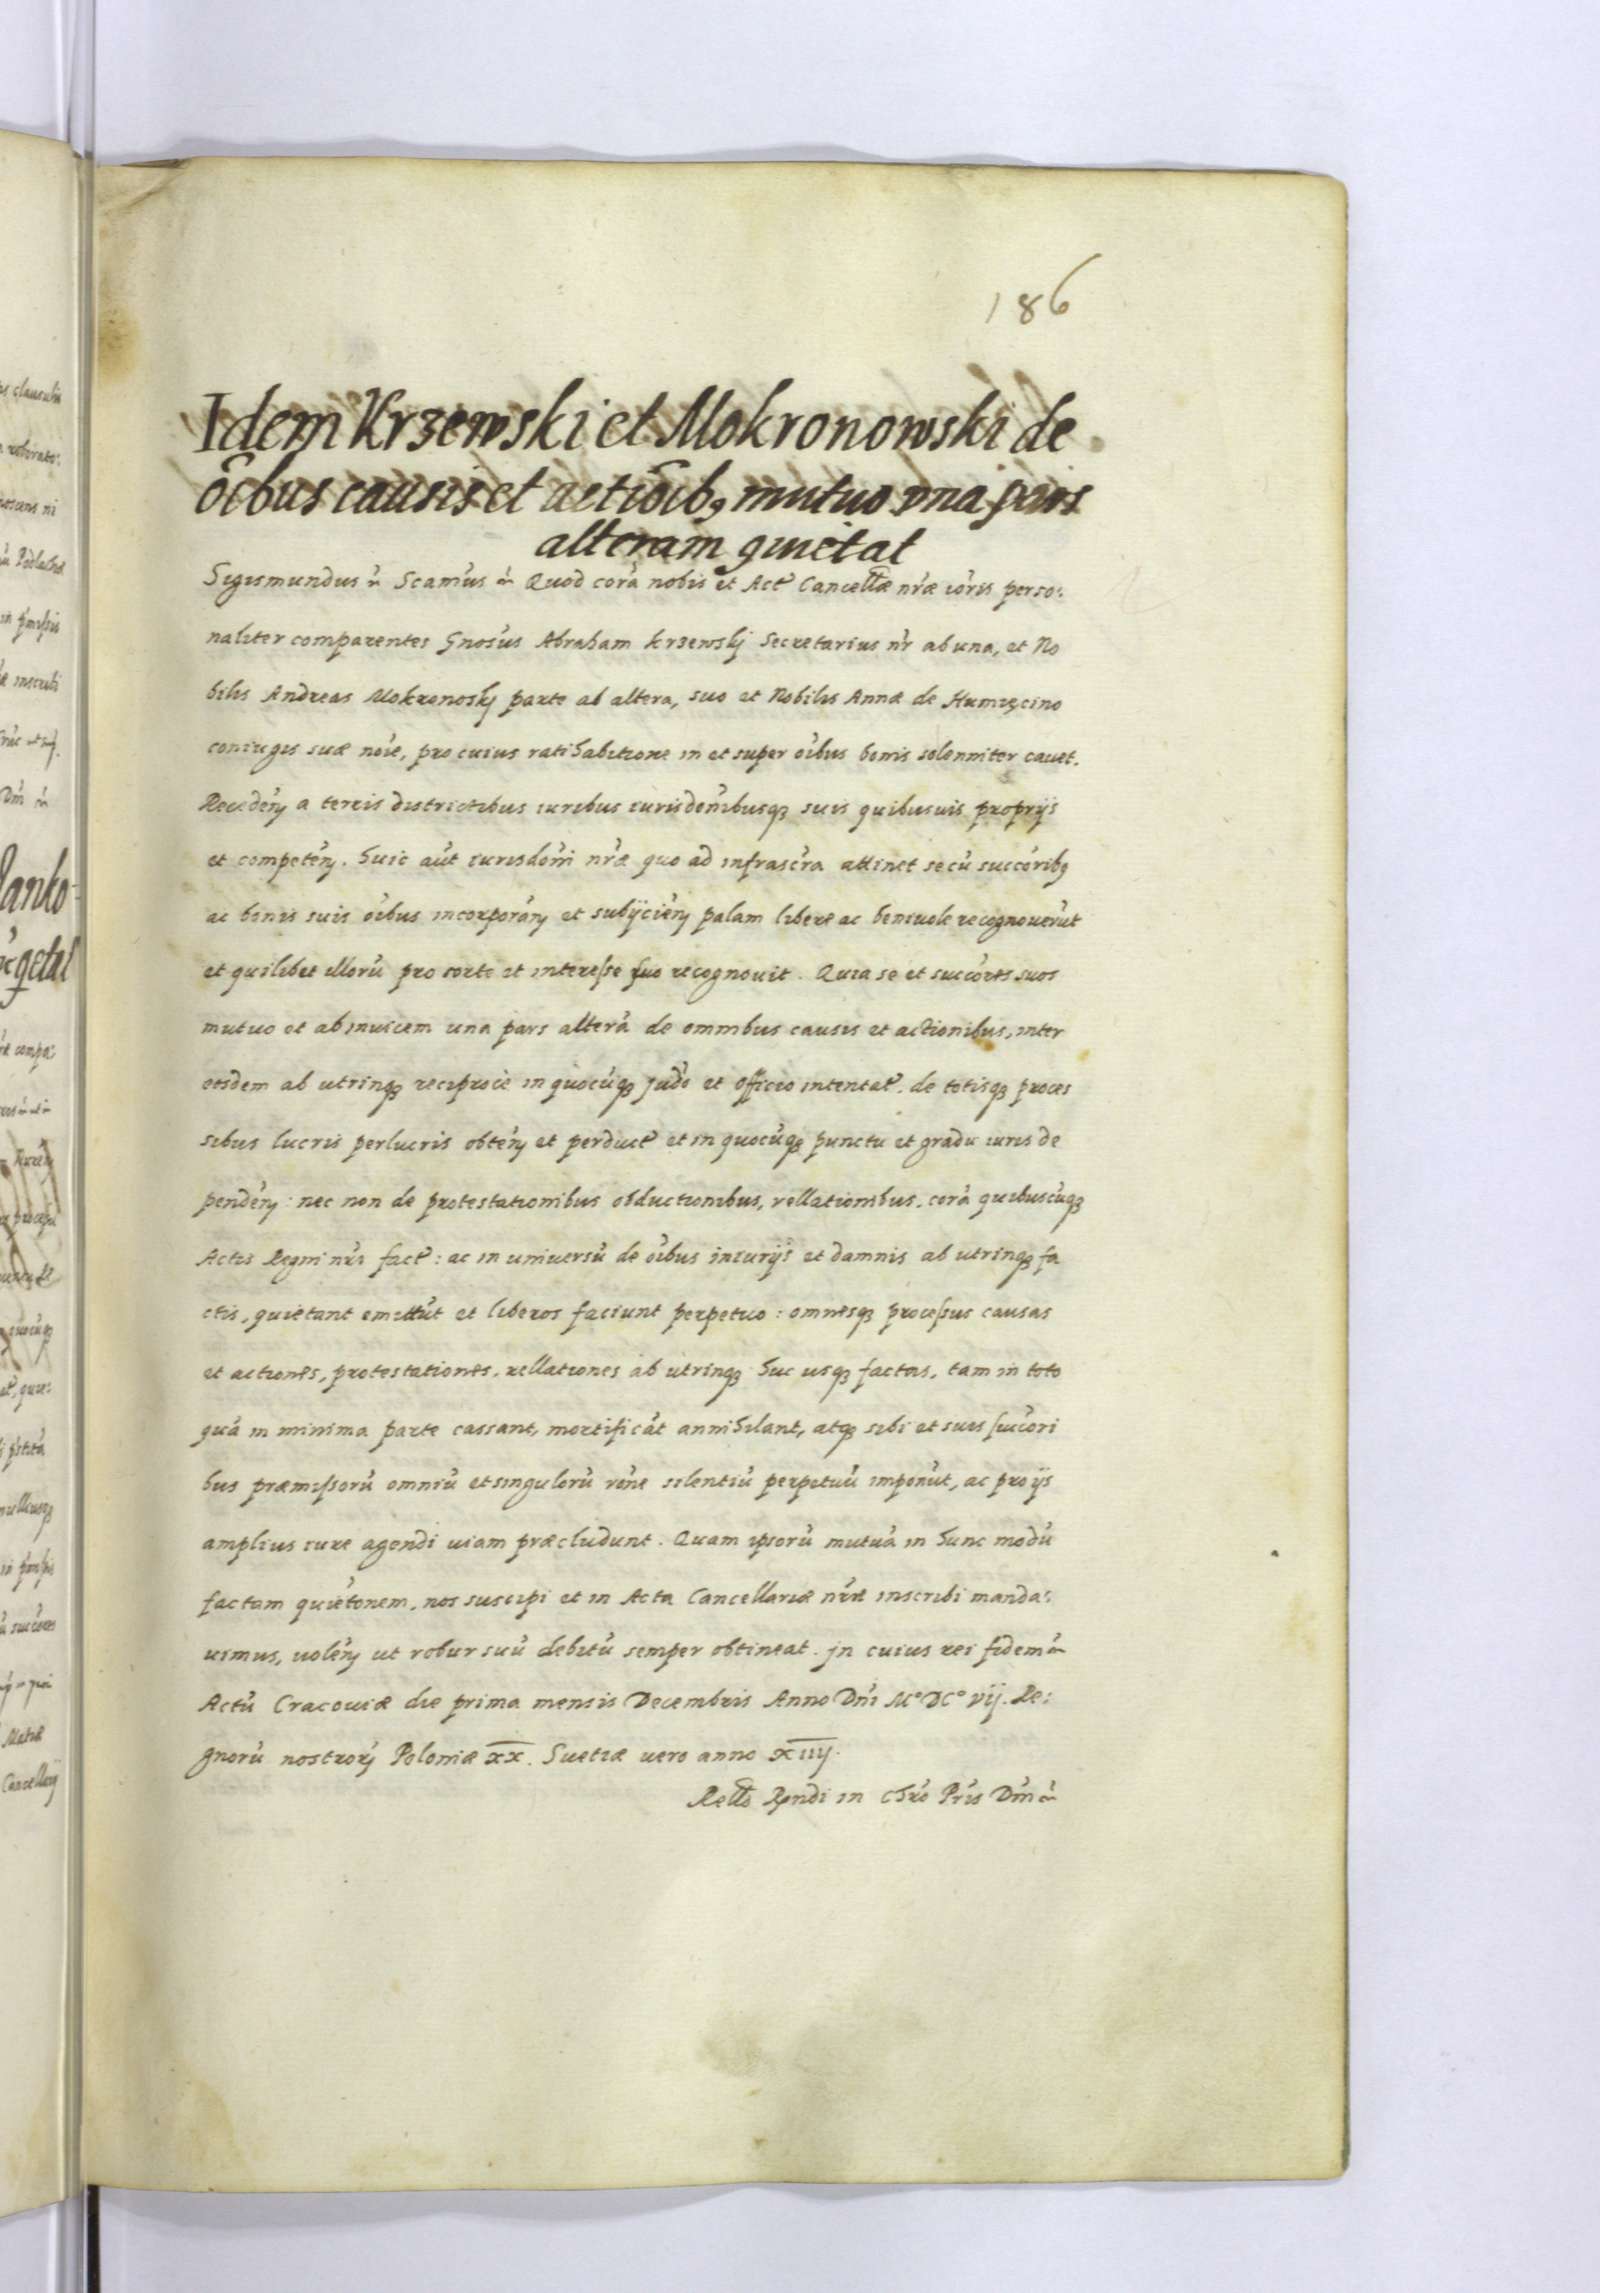 186
Idem Krzewski et Mokronowski de
oĩbus causis et actiõib9 mutuo vna pars
alteram quietat
Sigismundus ñ Scamus ñ Quod corã nobis et Act Cancellæ nræ ioris perso:
naliter comparentes Gnosus Abraham Krzewskj Secretarius nr ab una, et No
bilis Andreas Mokronoskj parte ab altera, suo et Nobilis Annæ de Humięcino
coniugis suæ noie, pro cuius ratihabitione in et super oibus bonis solenniter cavet.
Receden̄ a terris districtibus iuribus iurisdonibusq3 suis quibusuis proprijs
et competen̄. huic aut iurisdoni nræ quo ad infrascra attinet se cũ succoribq
ac bonis suis oibus incorporan̄ et subijcien̄ palam libere ac beniuole recognouerũt
et quilibet illorũ pro sorte et interesse suo recognouit. Quia se et succores suos
mutuo et ab inuicem una pars alterã de omnibus causis et actionibus, inter
eosdem ab utrinq3 reciproce in quocũq3 judo et officio intentat. de totisq3 proces
sibus lucris perlucris obten̄ et perduct et in quocũq3 punctu et gradu iuris de
penden̄: nec non de protestationibus obductionibus, rellationibus. corã quibuscũq3
Actis Regni nri fact: ac in universũ de oibus iniurijs et damnis ab utrinq3 fa
ctis, quietant emittũt et liberos faciunt perpetuo: omnesq3 processus causas
et actiones, protestationes. rellationes ab utrinq3 huc usq3 factas, tam in toto
quã in minima parte cassant, mortificãt annihilant, atq3 sibi et suis succori
bus præmissorũ omniũ et singulorũ rone silentiũ perpetuũ imponũt, ac pro ijs
amplius iure agendi uiam præcludunt. Quam ipsorũ mutuã in hunc modũ
factam quietonem, nos suscipi et in Acta Cancellariæ nræ inscribi manda:
uimus, uolen̄ ut robur suũ debitũ semper obtineat. jn cuius rei fidem ñ
Actũ Cracouiæ die prima mensis Decembris Anno Dni M° DC° vij. Re:
gnorũ nostrorj Poloniæ xx. Suetiæ uero anno xiiij.
Rello Rndi in Chro Pris Dni ñ